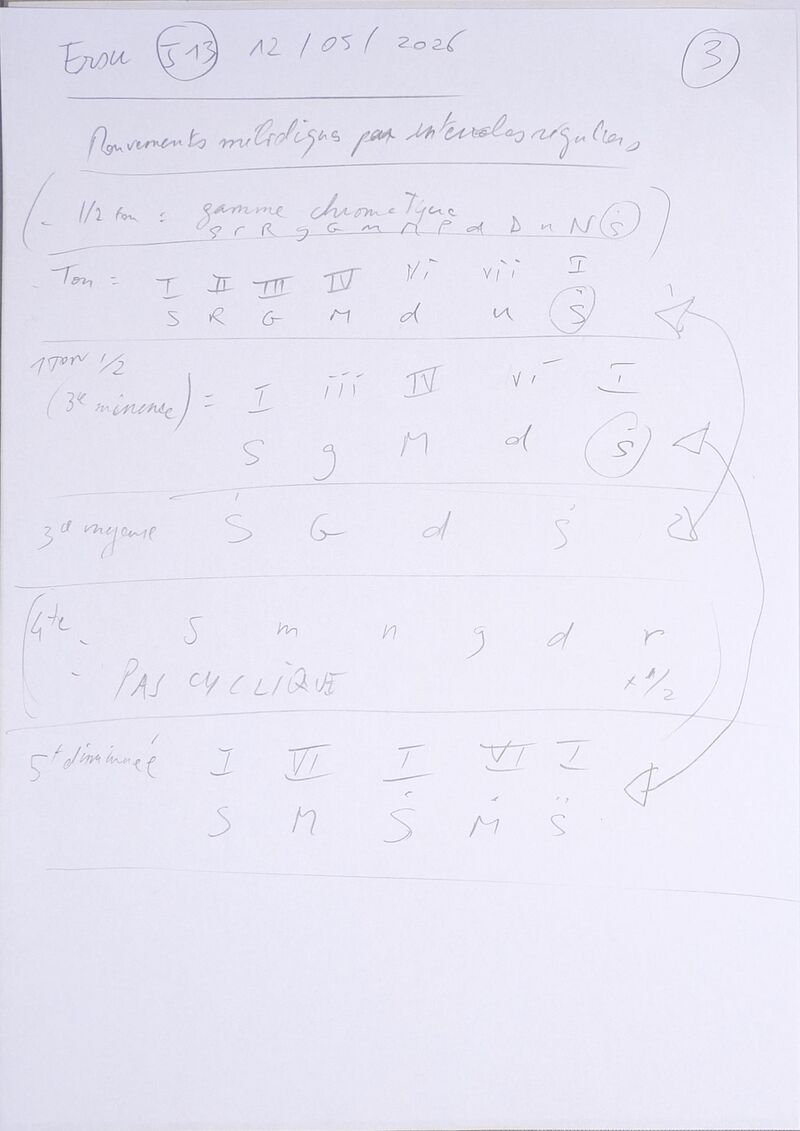 Ersu J13 12 / 05 / 2026 3
Mouvements mélodiques par intervalles réguliers
( - 1/2 ton : gamme chromatique
S r R g G m M P d D n N Ṡ )
- Ton = I II III IV vi vii I
S R G M d n Ṡ
1 TON 1/2
(3ce mineure) = I iii IV vi I
S g M d Ṡ
3ce majeure S G d Ṡ
4te - S m n g d r
- PAS CYCLIQUE x 1/2
5te diminuée I VI I VI I
S M Ṡ Ṁ S̈